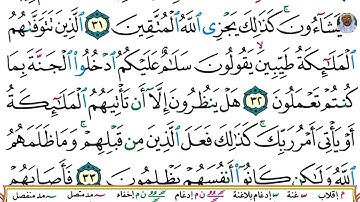 يَشَآءُونَ ۚ كَذَٰلِكَ يَجْزِى ٱللَّهُ ٱلْمُتَّقِينَ ٣١ ٱلَّذِينَ تَتَوَفَّىٰهُمُ
ٱلْمَلَـٰٓئِكَةُ طَيِّبِينَ ۙ يَقُولُونَ سَلَـٰمٌ عَلَيْكُمُ ٱدْخُلُوا۟ ٱلْجَنَّةَ بِمَا
كُنتُمْ تَعْمَلُونَ ٣٢ هَلْ يَنظُرُونَ إِلَّآ أَن تَأْتِيَهُمُ ٱلْمَلَـٰٓئِكَةُ
أَوْ يَأْتِىَ أَمْرُ رَبِّكَ ۚ كَذَٰلِكَ فَعَلَ ٱلَّذِينَ مِن قَبْلِهِمْ ۚ وَمَا ظَلَمَهُمُ
ٱللَّهُ وَلَـٰكِن كَانُوٓا۟ أَنفُسَهُمْ يَظْلِمُونَ ٣٣ فَأَصَابَهُمْ
م إقلاب غنة إدغام بلاغنة ن م إدغام ن م إخفاء مد متصل مد منفصل